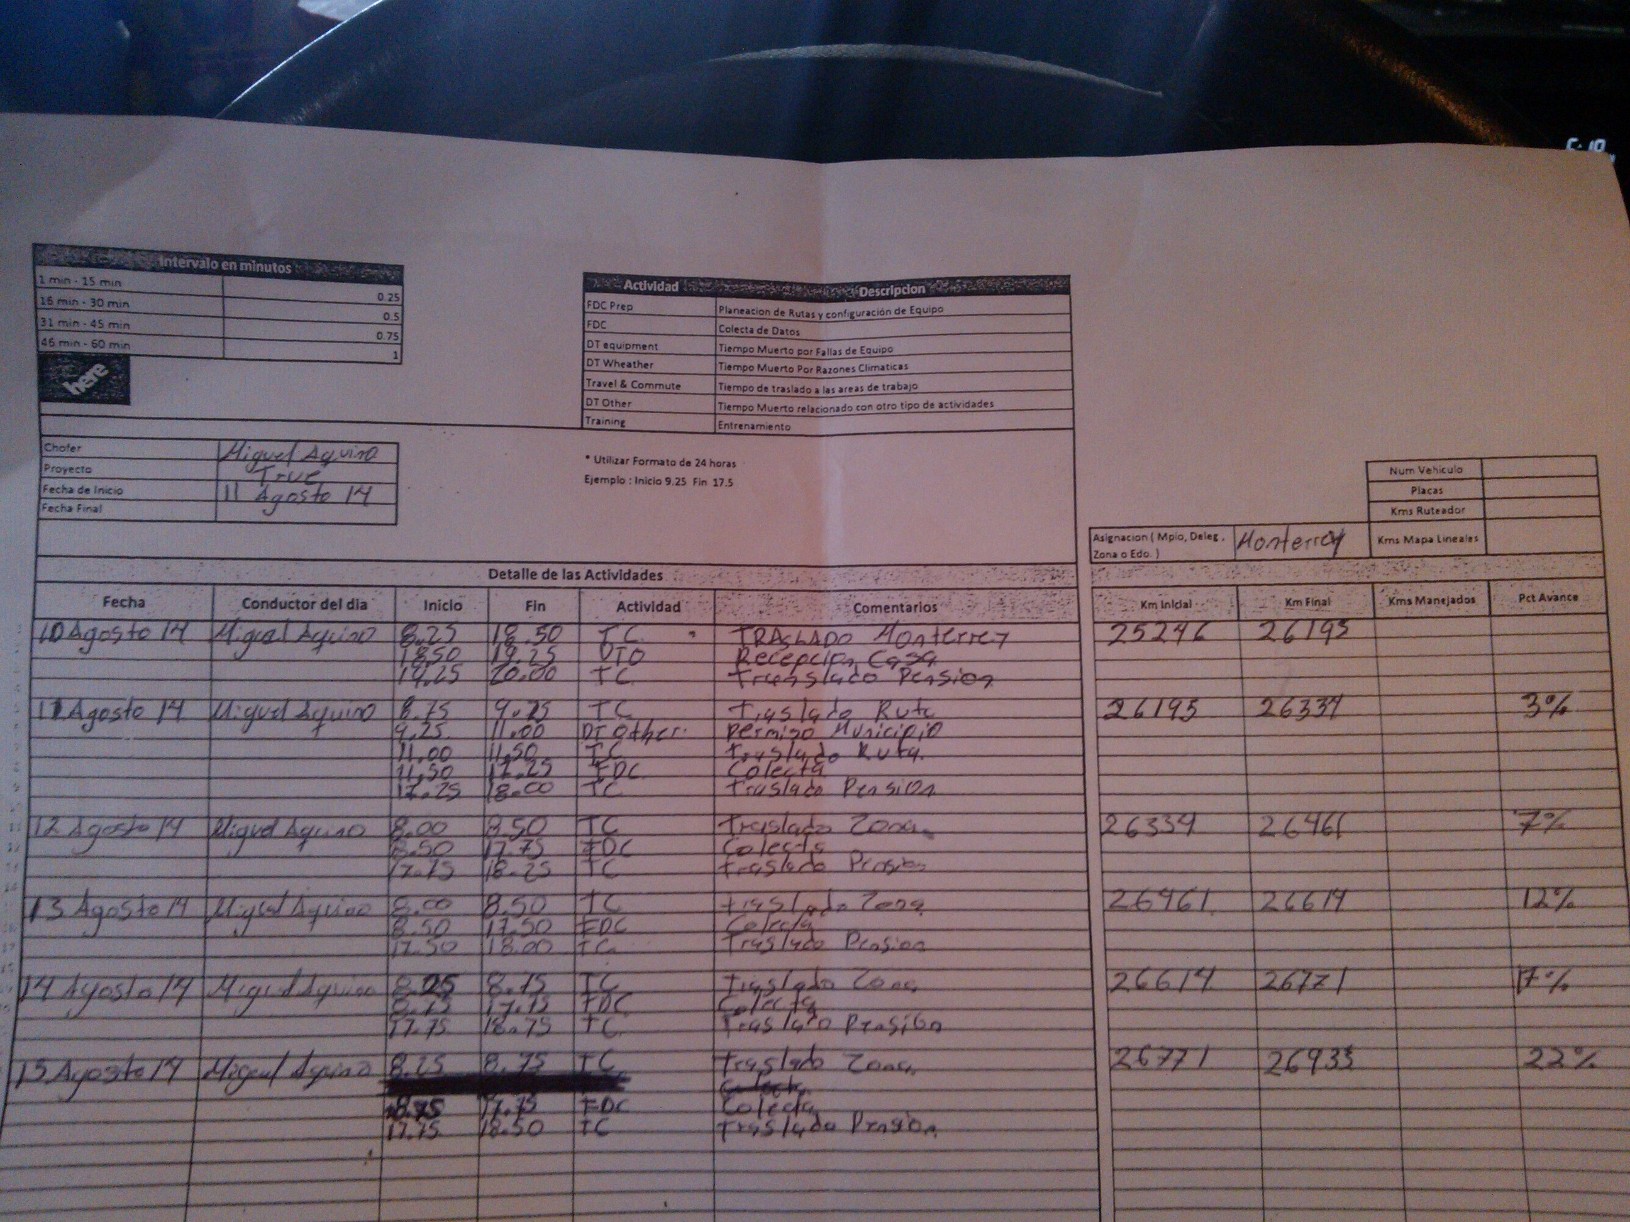 5:19
Intervalo en minutos
1 min - 15 min 0.25
16 min - 30 min 0.5
31 min - 45 min 0.75
46 min - 60 min 1
here
Actividad Descripcion
FDC Prep Planeacion de Rutas y configuración de Equipo
FDC Colecta de Datos
DT equipment Tiempo Muerto por Fallas de Equipo
DT Wheather Tiempo Muerto Por Razones Climaticas
Travel & Commute Tiempo de traslado a las areas de trabajo
DT Other Tiempo Muerto relacionado con otro tipo de actividades
Training Entrenamiento
Chofer Miguel Aquino
Proyecto True
Fecha de Inicio 11 Agosto 14
Fecha Final
* Utilizar Formato de 24 horas
Ejemplo : Inicio 9.25 Fin 17.5
Num Vehiculo
Placas
Kms Ruteador
Kms Mapa Lineales
Asignacion ( Mpio, Deleg ,
Zona o Edo. ) Monterrey
Detalle de las Actividades
Fecha Conductor del dia Inicio Fin Actividad Comentarios Km Inicial Km Final Kms Manejados Pct Avance
10 Agosto 14 Miguel Aquino 8.25 18.50 TC. TRASLADO Monterrey 25246 26195
18.50 19.25 DTO Recepcion Casa
19.25 20.00 TC Translado Pension
11 Agosto 14 Miguel Aquino 8.75 9.25 TC Traslado Ruta 26195 26334 3%
9.25 11.00 DT Other. Permiso Municipio
11.00 11.50 TC Traslado Ruta.
11.50 17.25 FDC Colecta
17.25 18.00 TC Traslado Pension
12 Agosto 14 Miguel Aquino 8.00 8.50 TC Traslado Zona 26334 26461 7%
8.50 17.75 FDC Colecta
17.75 18.25 TC Traslado Pension
13 Agosto 14 Miguel Aquino 8.00 8.50 TC Traslado Zona 26461 26614 12%
8.50 17.50 FDC Colecta
17.50 18.00 TC Traslado Pension
14 Agosto 14 Miguel Aquino 8.25 8.75 TC Traslado Zona 26614 26771 17%
8.75 17.75 FDC Colecta
17.75 18.75 TC Traslado Pension
15 Agosto 14 Miguel Aquino 8.25 8.75 TC Traslado Zona 26771 26933 22%
Colecta
8.75 17.75 FDC Colecta
17.75 18.50 TC Traslado Pension